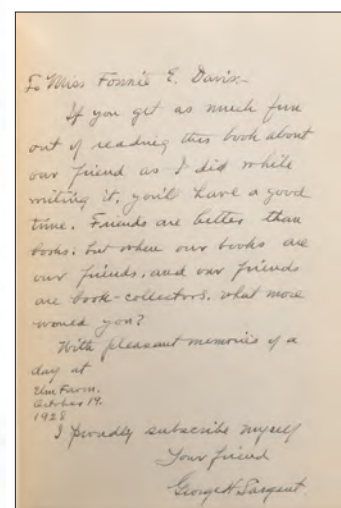 To Miss Fonnie E. Davis:-
If you get as much fun
out of reading this book about
our friend as I did while
writing it, you'll have a good
time. Friends are better than
books; but when our books are
our friends, and our friends
are book-collectors, what more
would you?
With pleasant memories of a
day at
Elm Farm.
October 19.
1928
I proudly subscribe myself
Your friend
George H. Sargent.